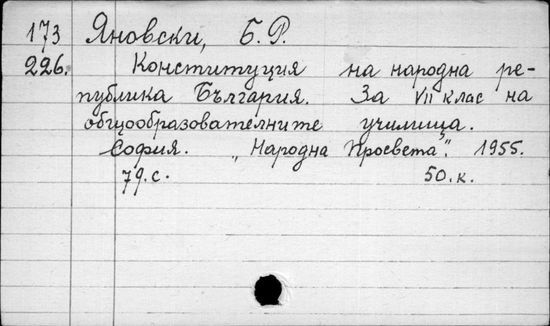 173 Яновски, Б. Р.
226. Конституция на народна ре-
публика България. За VII клас на
общообразователните училища.
София. „Народна просвета“. 1955.
79.с. 50.к.